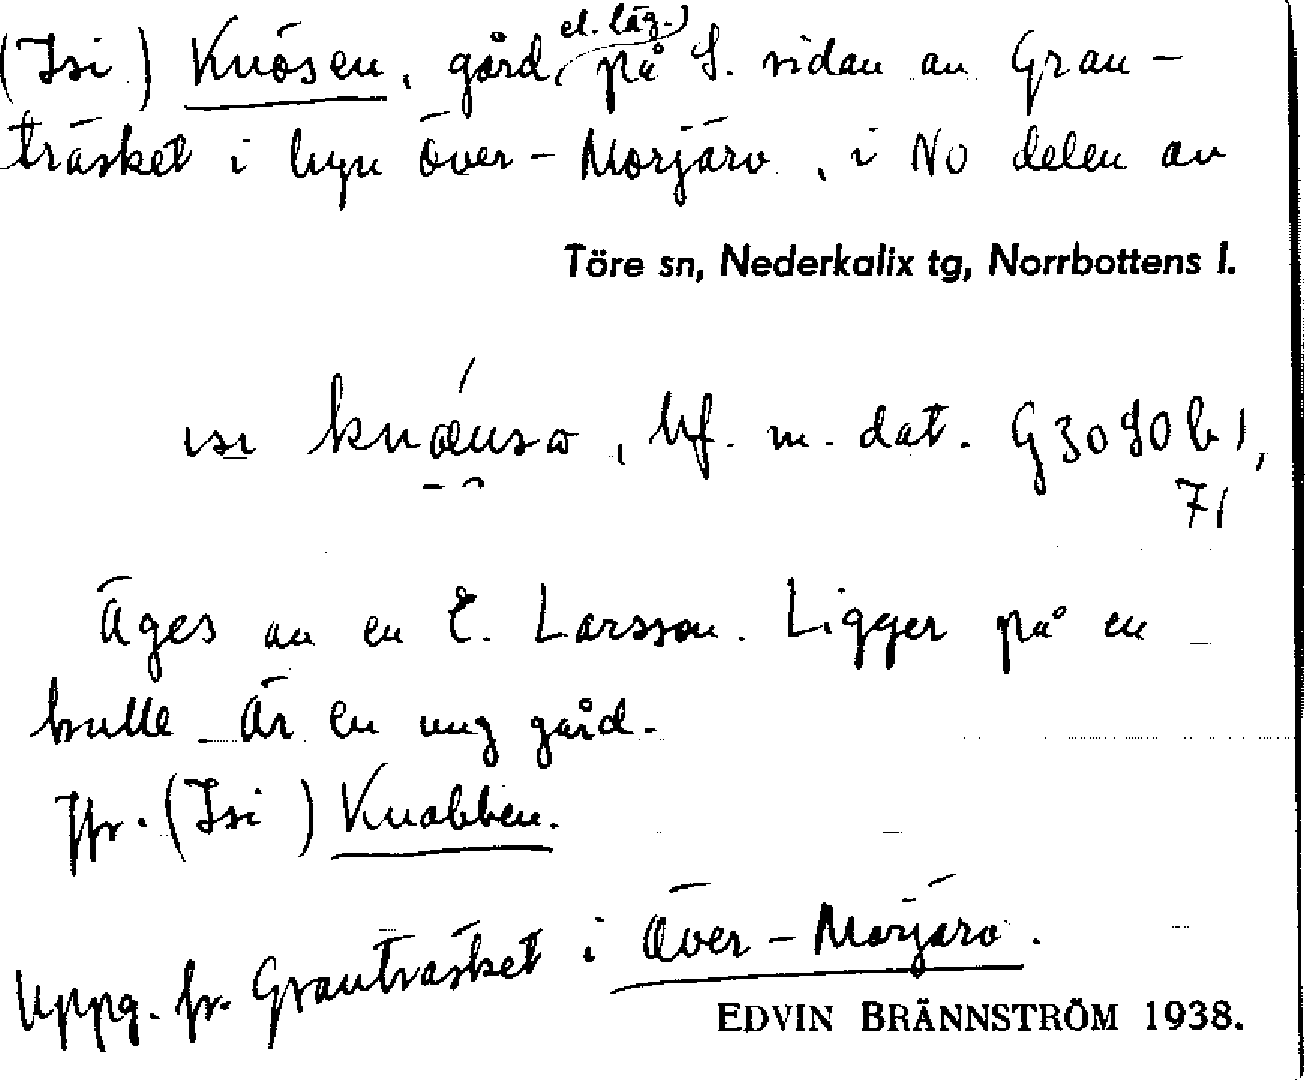 (Isi) Knösen, gård, (el. läg.) på S. sidan av Gran-
träsket i byn Över-Morjärv, i NO delen av
Töre sn, Nederkalix tg, Norrbottens l.
ɩsɩ knœ́nsɷ, bf. m. dat. G3090 b 1,
71
Äges av en E. Larsson. Ligger på en
kulle. Är en ung gård.
Jfr. (Isi) Knabben.
Uppg. fr. Granträsket i Över-Morjärv.
EDVIN BRÄNNSTRÖM 1938.